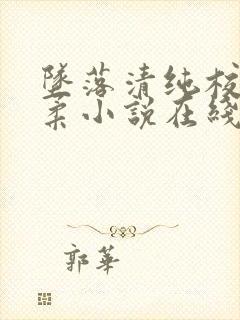 墜落清纯校
柔小說在綫
郭華